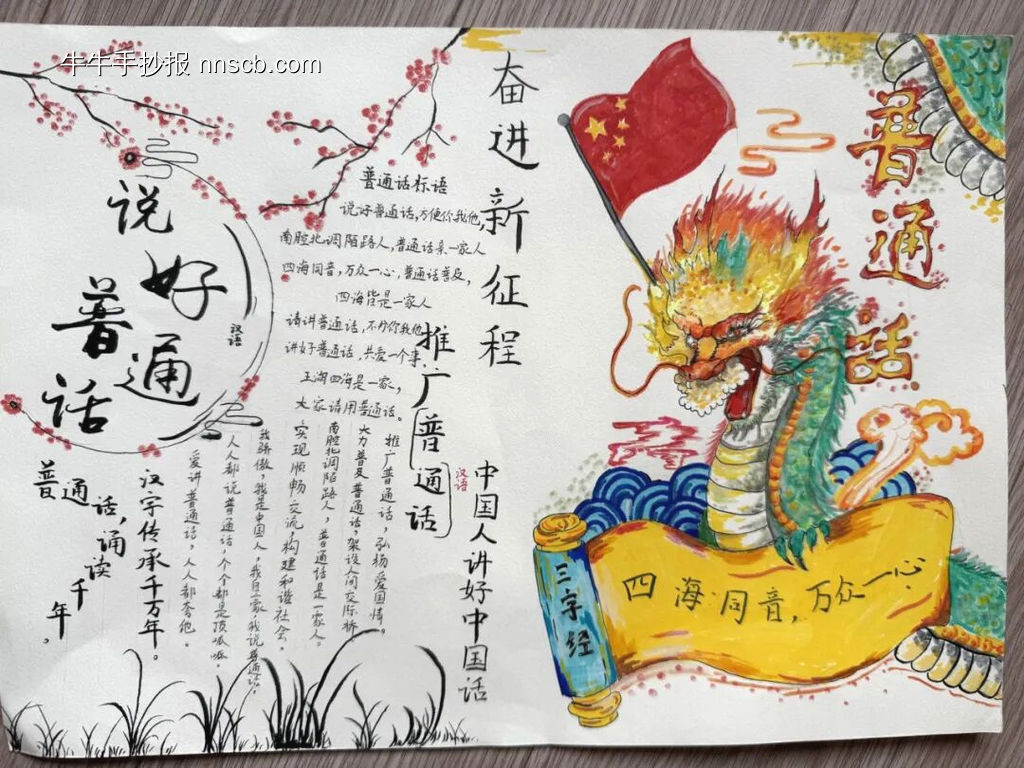 牛牛手抄报 nnscb.com
说好普通话
汉语
普通话,诵读千年。
汉字传承千万年。
普通话标语
说好普通话,方便你我他,
南腔北调陌路人,普通话亲一家人
四海同音,万众一心,普通话普及,
四海皆是一家人
请讲普通话,不办你我他
讲好普通话,共爱一个事
五湖四海是一家,
大家请用普通话。
推广普通话,弘扬爱国情。
大力普及普通话,架设人间交际桥
南腔北调陌路人,普通话是一家人。
实现顺畅交流,构建和谐社会。
我骄傲,我是中国人,我自豪我说普通话。
人人都说普通话,个个都是顶呱呱。
爱讲普通话,人人都夸他。
奋进新征程
推广普通话
汉语
中国人讲好中国话
普通话
三字经
四海同音,万众一心